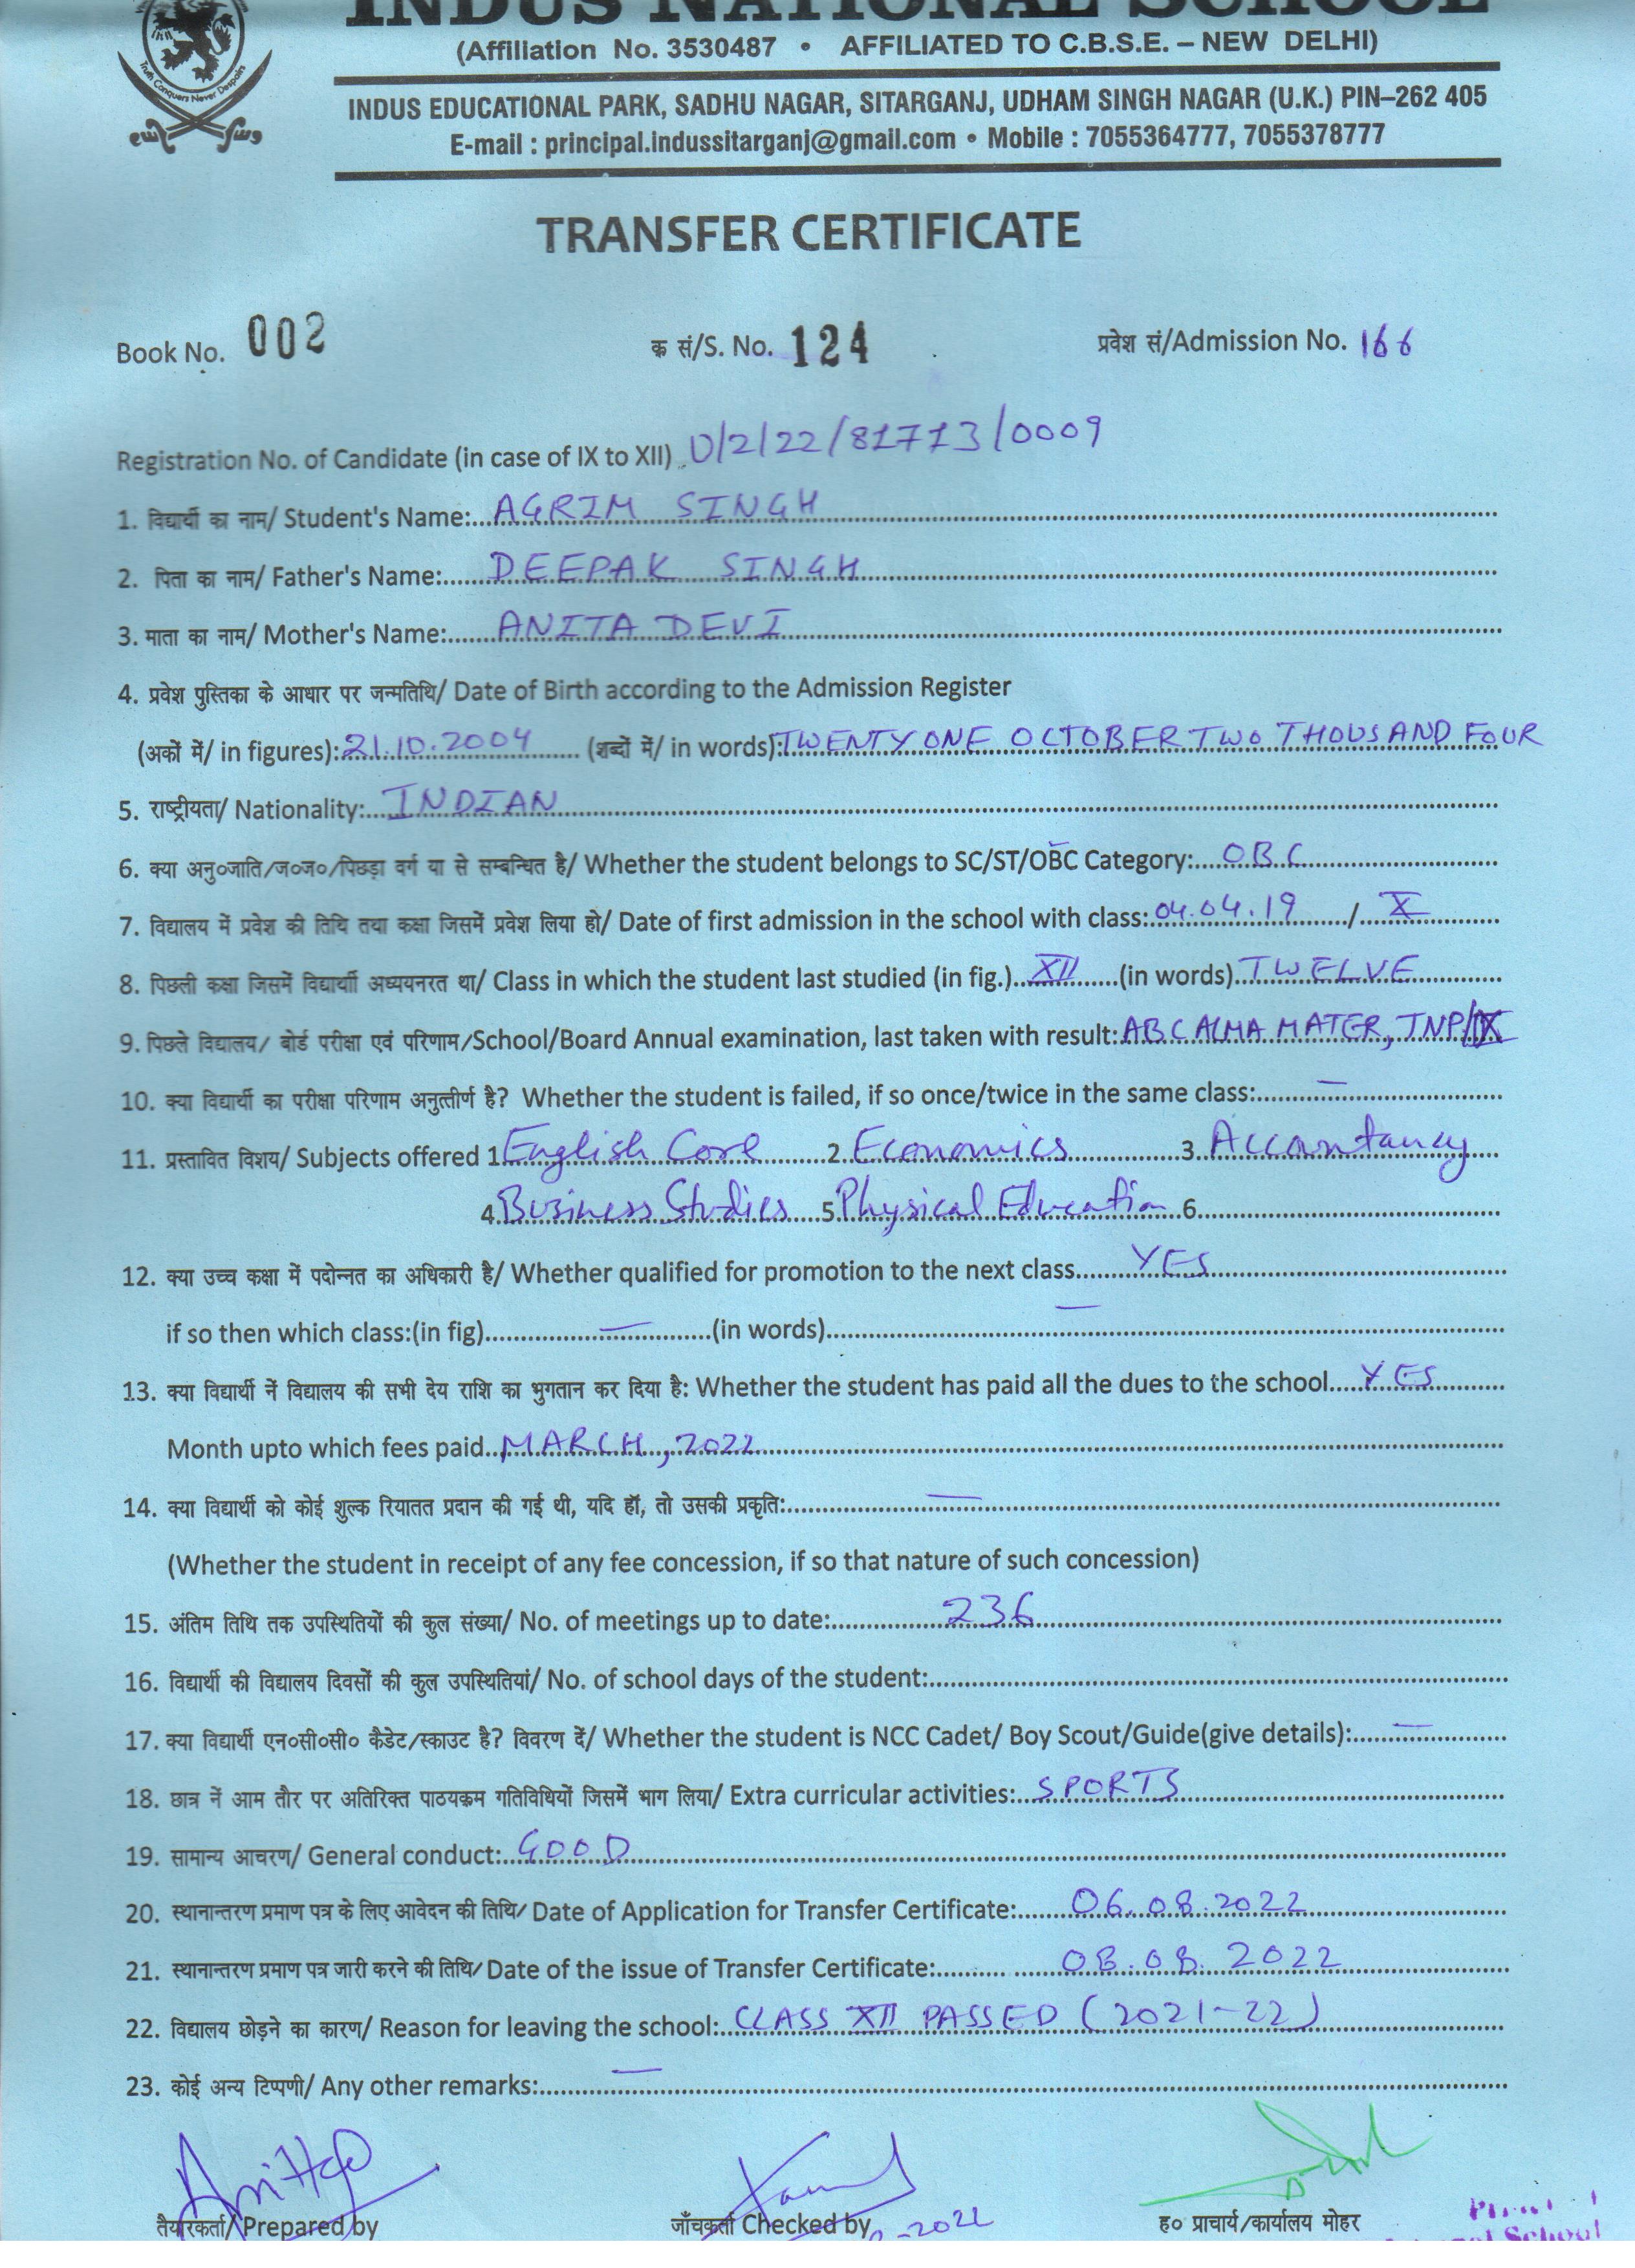 INDUS NATIONAL SCHOOL
(Affiliation No. 3530487 • AFFILIATED TO C.B.S.E. – NEW DELHI)
Truth Conquers Never Despairs
INDUS EDUCATIONAL PARK, SADHU NAGAR, SITARGANJ, UDHAM SINGH NAGAR (U.K.) PIN–262 405
E-mail : principal.indussitarganj@gmail.com • Mobile : 7055364777, 7055378777
TRANSFER CERTIFICATE
Book No. 002 क सं/S. No. 124 प्रवेश सं/Admission No. 166
Registration No. of Candidate (in case of IX to XII) U/2/22/81713/0009
1. विद्यार्थी का नाम/ Student's Name: AGRIM SINGH
2. पिता का नाम/ Father's Name: DEEPAK SINGH
3. माता का नाम/ Mother's Name: ANITA DEVI
4. प्रवेश पुस्तिका के आधार पर जन्मतिथि/ Date of Birth according to the Admission Register
(अकों में/ in figures): 21.10.2004 (शब्दों में/ in words): TWENTY ONE OCTOBER TWO THOUSAND FOUR
5. राष्ट्रीयता/ Nationality: INDIAN
6. क्या अनु०जाति/ज०ज०/पिछड़ा वर्ग या से सम्बन्धित है/ Whether the student belongs to SC/ST/OBC Category: OBC
7. विद्यालय में प्रवेश की तिथि तथा कक्षा जिसमें प्रवेश लिया हो/ Date of first admission in the school with class: 04.04.19 / X
8. पिछली कक्षा जिसमें विद्यार्थी अध्ययनरत था/ Class in which the student last studied (in fig.) XII (in words) TWELVE
9. पिछले विद्यालय/ बोर्ड परीक्षा एवं परिणाम/School/Board Annual examination, last taken with result: ABC ALMA MATER, TNP/IX
10. क्या विद्यार्थी का परीक्षा परिणाम अनुत्तीर्ण है? Whether the student is failed, if so once/twice in the same class: —
11. प्रस्तावित विशय/ Subjects offered 1. English Core 2. Economics 3. Accountancy
4. Business Studies 5. Physical Education 6.
12. क्या उच्च कक्षा में पदोन्नत का अधिकारी है/ Whether qualified for promotion to the next class YES
if so then which class:(in fig) — (in words) —
13. क्या विद्यार्थी नें विद्यालय की सभी देय राशि का भुगतान कर दिया है: Whether the student has paid all the dues to the school YES
Month upto which fees paid MARCH, 2022
14. क्या विद्यार्थी को कोई शुल्क रियातत प्रदान की गई थी, यदि हॉ, तो उसकी प्रकृति: —
(Whether the student in receipt of any fee concession, if so that nature of such concession)
15. अंतिम तिथि तक उपस्थितियों की कुल संख्या/ No. of meetings up to date: 236
16. विद्यार्थी की विद्यालय दिवसों की कुल उपस्थितियां/ No. of school days of the student:
17. क्या विद्यार्थी एन०सी०सी० कैडेट/स्काउट है? विवरण दें/ Whether the student is NCC Cadet/ Boy Scout/Guide(give details): —
18. छात्र नें आम तौर पर अतिरिक्त पाठयक्रम गतिविधियों जिसमें भाग लिया/ Extra curricular activities: SPORTS
19. सामान्य आचरण/ General conduct: GOOD
20. स्थानान्तरण प्रमाण पत्र के लिए आवेदन की तिथि/ Date of Application for Transfer Certificate: 06.08.2022
21. स्थानान्तरण प्रमाण पत्र जारी करने की तिथि/ Date of the issue of Transfer Certificate: 08.08.2022
22. विद्यालय छोड़ने का कारण/ Reason for leaving the school: CLASS XII PASSED (2021-22)
23. कोई अन्य टिप्पणी/ Any other remarks: —
तैयारकर्ता/ Prepared by जाँचकर्ता Checked by ह० प्राचार्य/कार्यालय मोहर
-2022
School